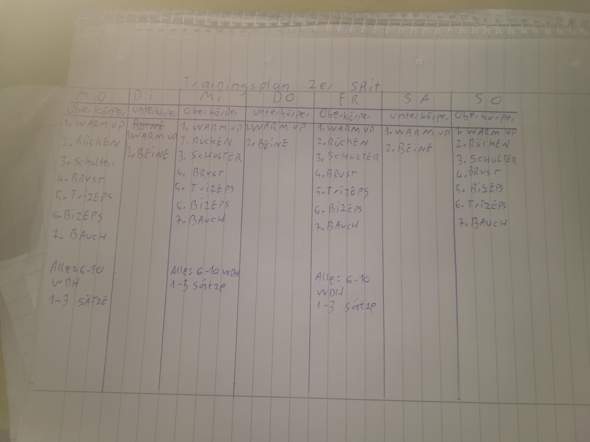 Trainingsplan 2er SPlit
MO DI MI DO FR SA SO
Oberkörper unterkörper Oberkörper unterkörper Oberkörper unterkörper Oberkörper
1. WARM UP
2. RÜCKEN
3. Schulter
4. BRUST
5. TRIZEPS
6. BIZEPS
7. BAUCH
Alles 6-10
WDH
1-3 SÄTZE
WARM UP
2. BEINE
1. WARM UP
2. RÜCKEN
3. SCHULTER
4. BRUST
5. TRIZEPS
6. BIZEPS
7. BAUCH
Alles 6-10 WDH
1-3 Sätze
1. WARM UP
2. BEINE
1. WARM UP
2. RÜCKEN
3. SCHULTER
4. BRUST
5. TRIZEPS
6. BIZEPS
7. BAUCH
Alles 6-10
WDH
1-3 Sätze
1. WARM UP
2. BEINE
1. WARM UP
2. RÜCKEN
3. SCHULTER
4. BRUST
5. BIZEPS
6. TRIZEPS
7. BAUCH